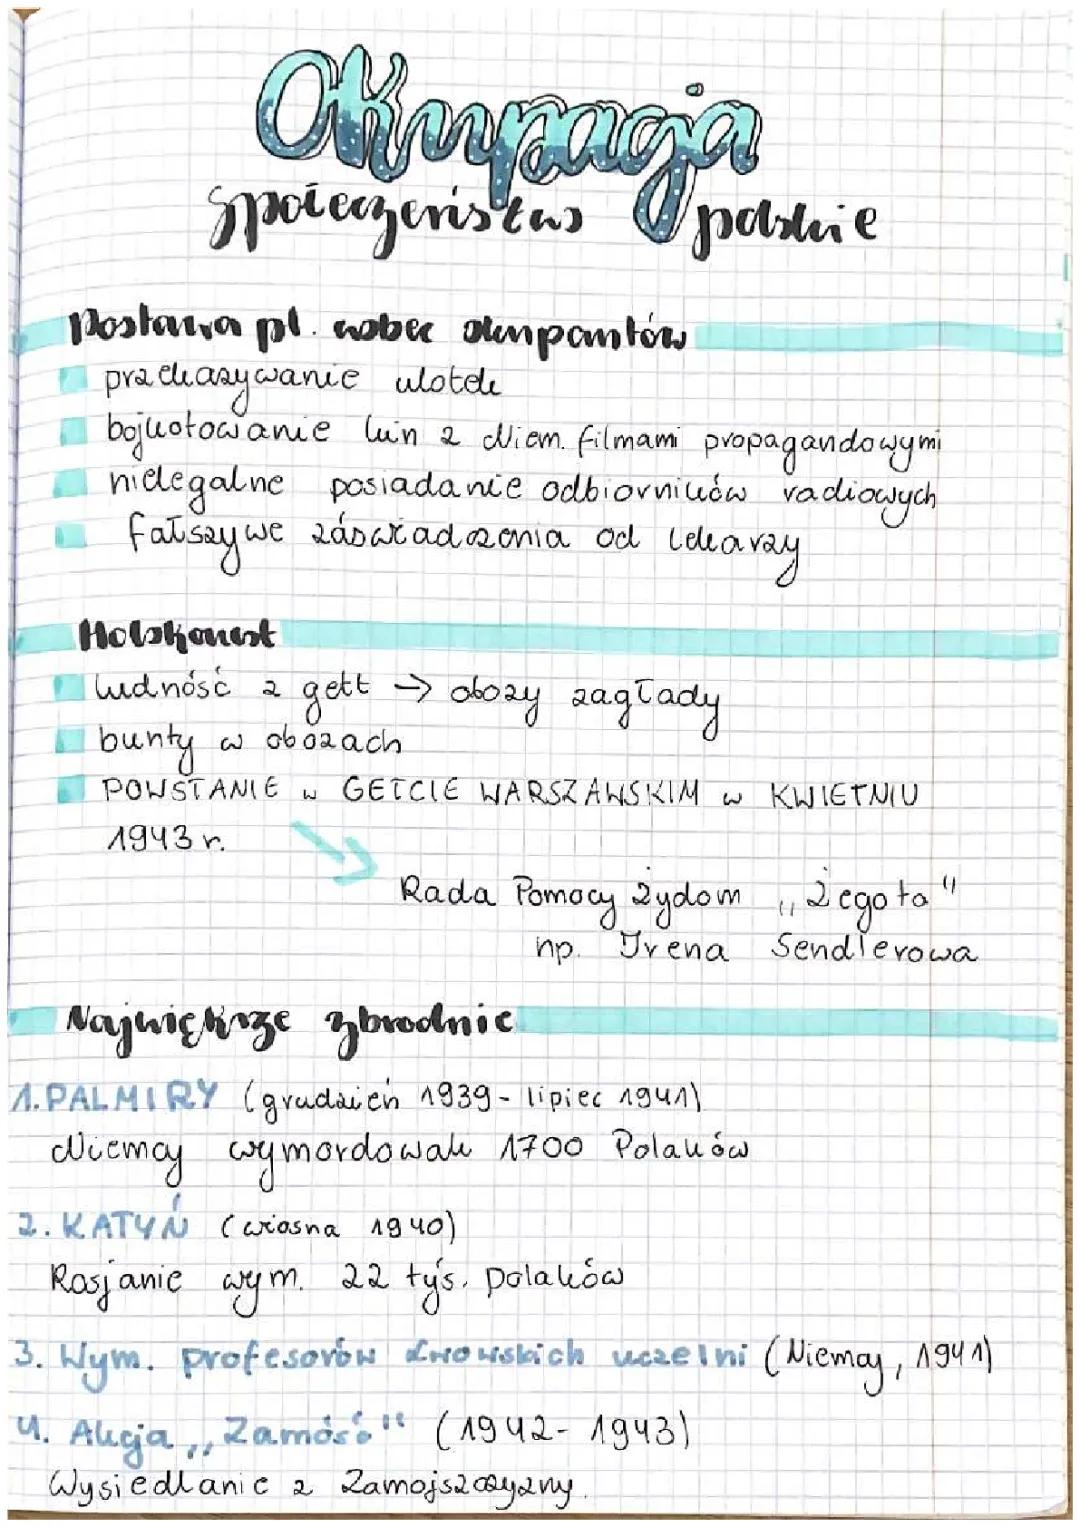 Okupacja
społeczeństwo polskie
Postawa pl. wobec okupantów
przekazywanie ulotek
bojkotowanie kin z Niem. filmami propagandowymi
nielegalne posiadanie odbiorników radiowych
fałszywe záświadczenia od lekarzy
Holokaust
ludność z gett → obozy zagłady
bunty w obozach
POWSTANIE w GETCIE WARSZAWSKIM w KWIETNIU
1943 r.
Rada Pomocy Żydom „Żegota"
np. Irena Sendlerowa
Największe zbrodnie
1. PALMIRY (grudzień 1939 - lipiec 1941)
Niemcy wymordowali 1700 Polaków
2. KATYŃ (wiosna 1940)
Rosjanie wym. 22 tyś. polaków
3. Wym. profesorów lwowskich uczelni (Niemcy, 1941)
4. Akcja „Zamość" (1942 - 1943)
Wysiedlanie z Zamojszczyzny.